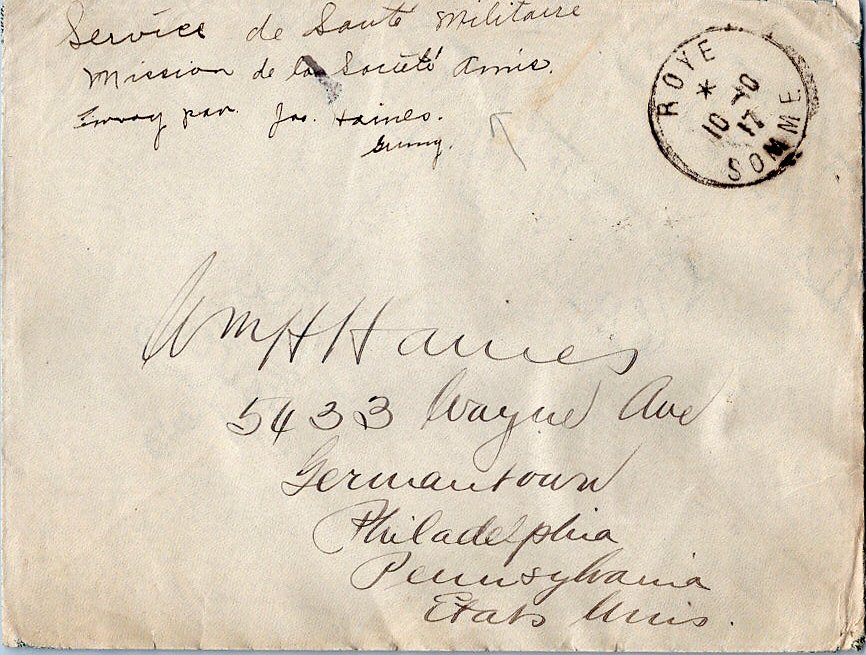 Service de Santé Militaire
Mission de la Société Amis.
Envoy par Jas. Haines.
Gruny.
ROYE
* 10
10 17
SOMME
Wm H Haines
5433 Wayne Ave
Germantown
Philadelphia
Pennsylvania
Etats Unis.